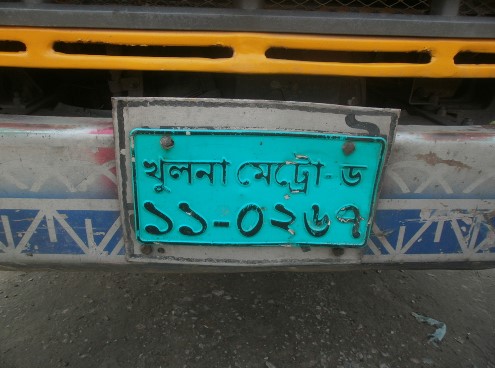 খুলনা মেট্রো-ড
১১-০২৬৭